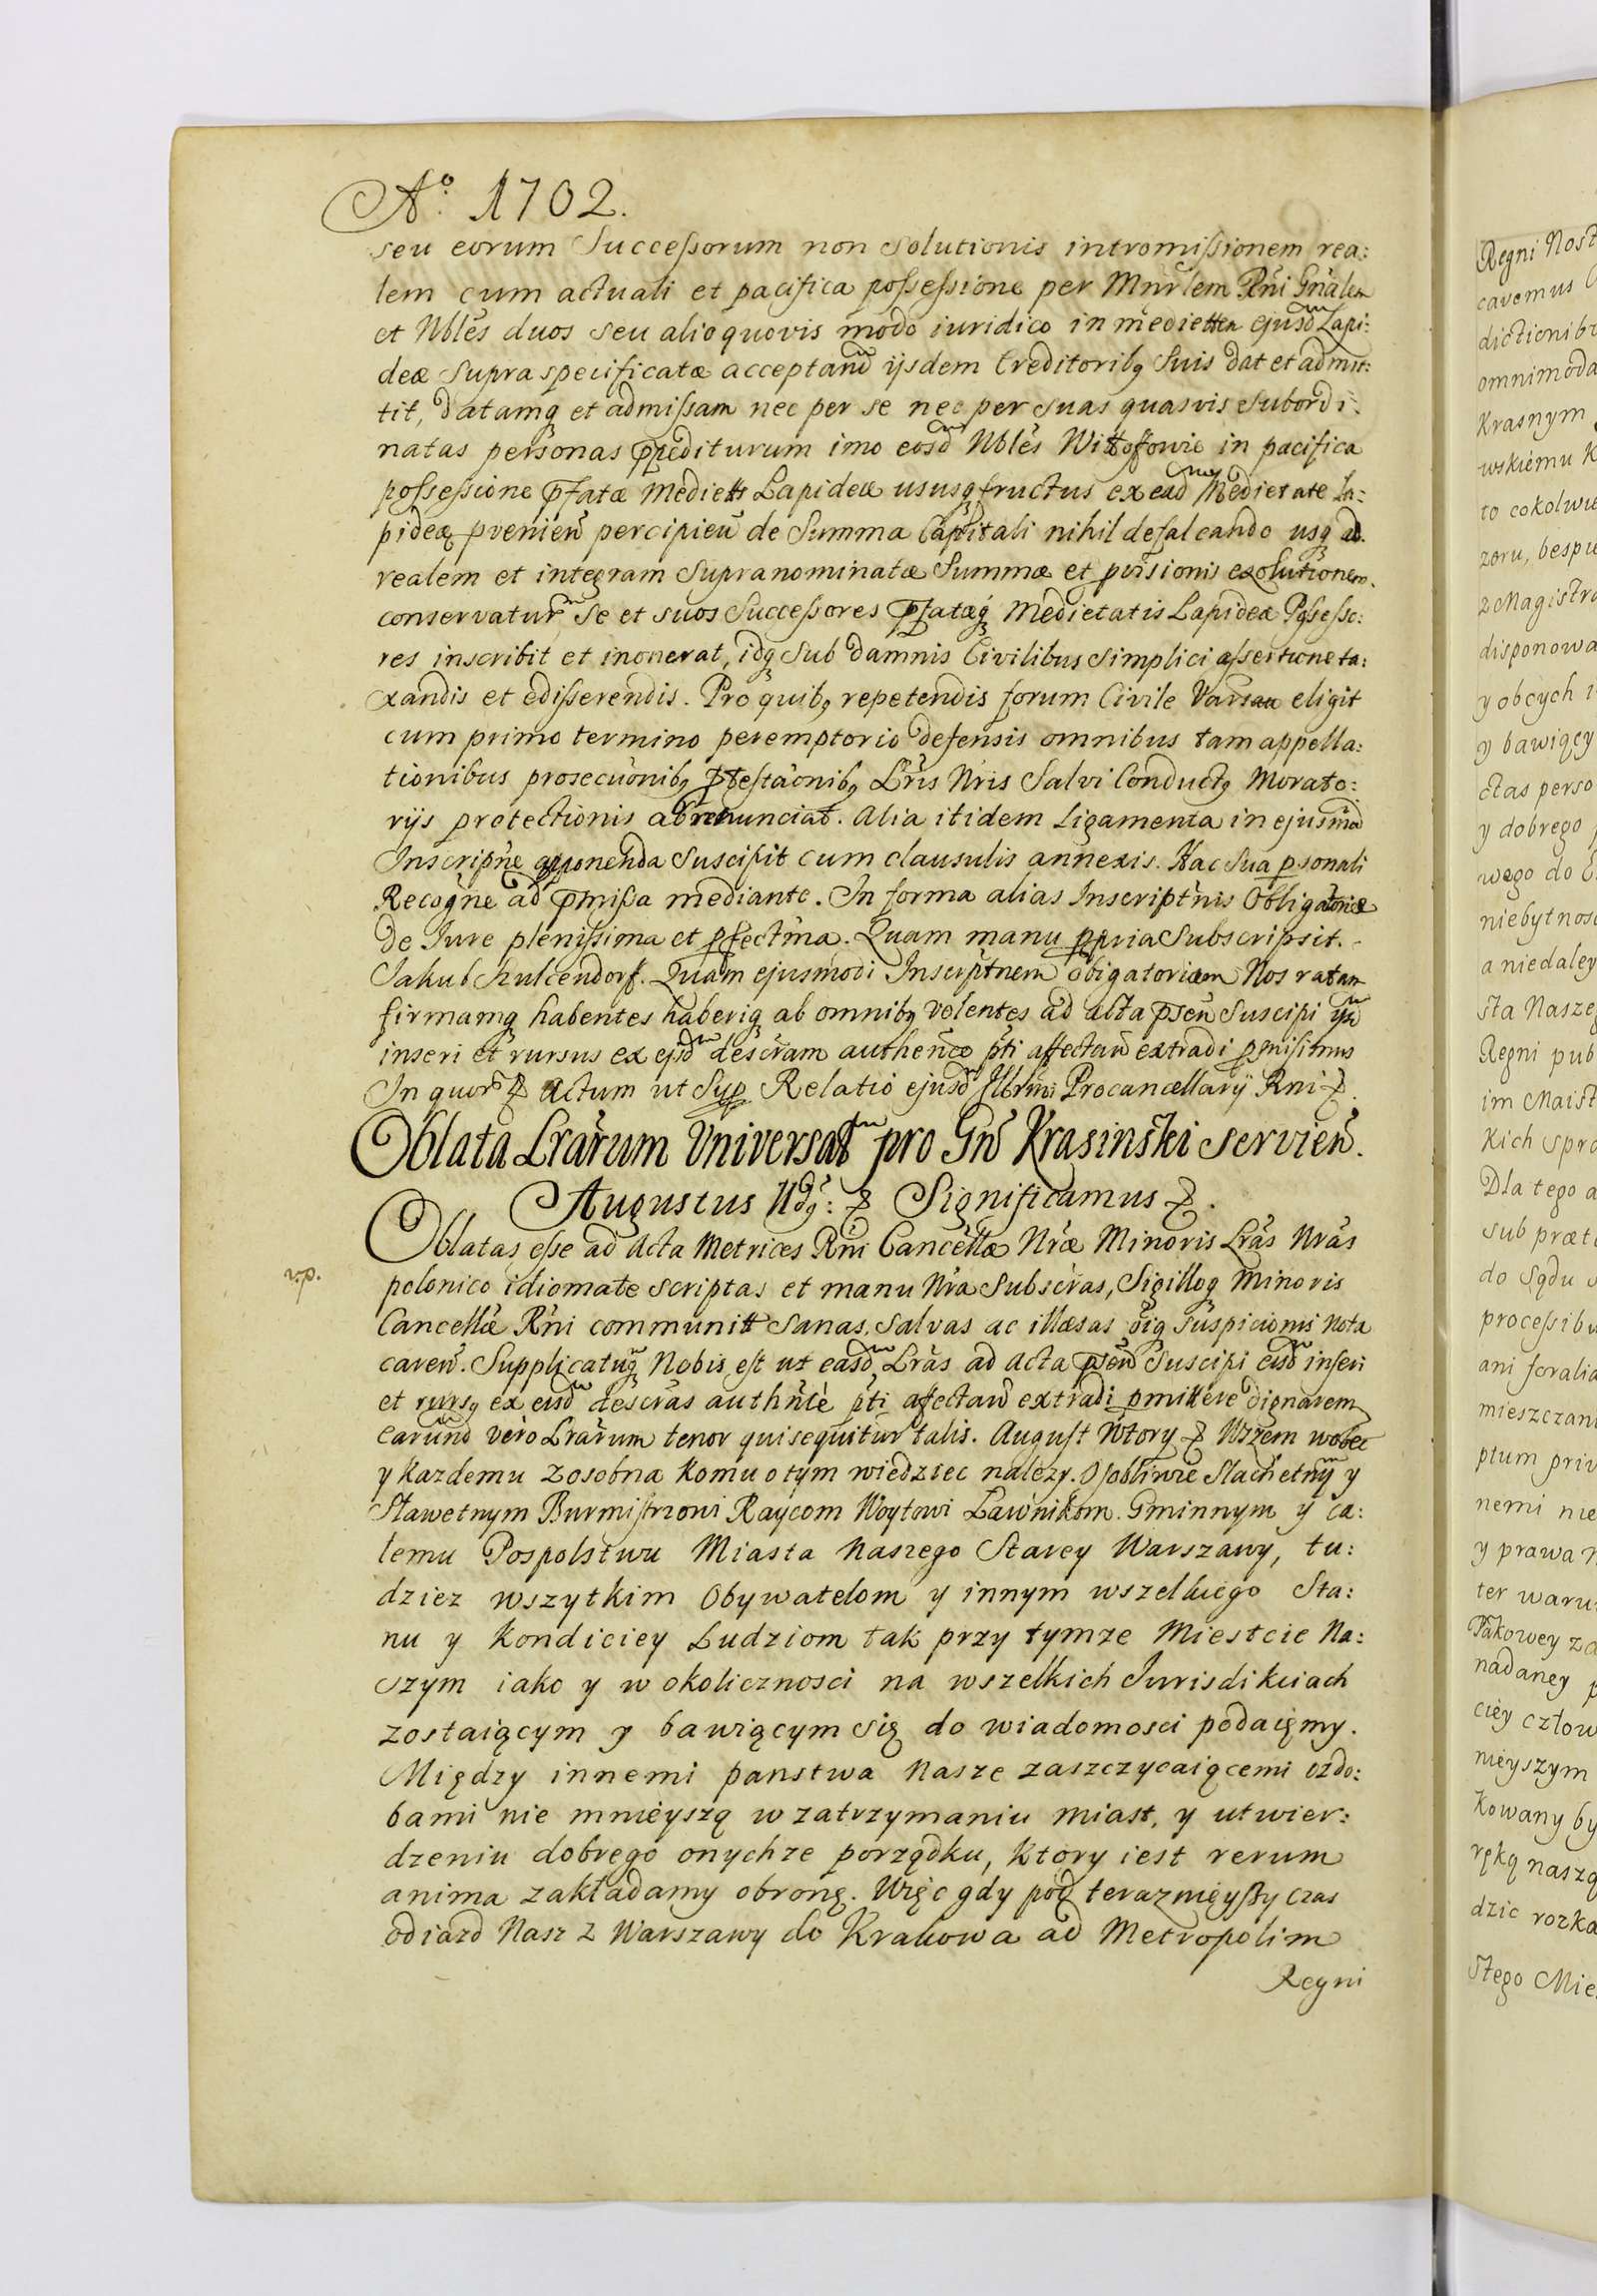 Aº. 1702.
seu eorum Successorum non solutionis intromissionem rea:
lem cum actuali et pacifica possessione per Mnrlem Rni Gnalem
et Nbles duos seu alio quovis modo iuridico in mediettem ejusd Lapi:
deæ supra specificatæ acceptand ijsdem Creditorib9 Suis dat et admit:
tit, datamq et admissam nec per se nec per suas quasvis subordi:
natas personas impediturum imo eosd Nbles Wittoffowie in pacifica
possessione pfatæ Mediett Lapideæ ususq fructus ex ead Medietate La:
pideæ pvenien percipien de Summa Capitali nihil defalcando usq ad
realem et integram supranominatæ Summæ et pvisionis exolutionem
conservatur Se et suos Successores pfatæq Medietatis Lapideæ Possesso:
res inscribit et inonerat, idq sub damnis Civilibus simplici assertione ta:
xandis et edisserendis. Pro quib9 repetendis forum Civile Varsau eligit
cum primo termino peremptorio defensis omnibus tam appella:
tionibus prosecuonib9 ptestaonib9 Lris Nris Salvi Conduct9 Morato:
rijs protectionis abrenunciat. Alia itidem Ligamenta in ejusmod
Inscripne apponenda suscipit cum clausulis annexis. Hac Sua psonali
Recogne ad pmissa mediante. In forma alias Inscriptnis Obligatoriæ
de Iure plenissima et pfectma. Quam manu ppria subscripsit.
Jakub Schulcendorf. Quam ejusmodi Inscriptnem obigatoriam Nos ratam
firmamq habentes haberiq ab omnib9 volentes ad acta psen Suscipi ijsd
inseri et rursus ex ejsd descram authenco pti affectan extradi pmisimus
In quor & Actum ut Sup Relatio ejusd Illrmi Procancellarij Rni &.
Oblata Lrarum Universal pro Gnd Krasinski servien.
Augustus IIdg: & Significamus &.
Oblatas esse ad Acta Metrices Rni Cancellæ Nræ Minoris Lras Nras
v.p.
polonico idiomate scriptas et manu Nra subscras, Sigilloq Minoris
Cancellæ Rni communitt sanas, salvas ac illæsas oiq suspicionis nota
caren. Supplicatuq Nobis est ut easd Lras ad acta psen Suscipi eisd inseri
et rurs9 ex eisd descras authnte pti affectan extradi pmittere dignarem
earund vero Lrarum tenor qui sequitur talis. August Wtory & Wszem wobec
y kazdemu zosobna komu o tym wiedziec nalezy. Osobliwie Slachetnym y
Sławetnym Burmistrzowi Raycom Woytowi Ławnikom. Gminnym y ca:
łemu Pospolstwu Miasta Naszego Starey Warszawy, tu:
dziez wszytkim Obywatelom y innym wszelkiego Sta:
nu y Kondiciey Ludziom tak przy tymze Miestcie Na:
szym iako y w okolicznosci na wszelkich Jurisdikciach
zostaiącym y bawiącym się do wiadomosci podaięmy.
Między innemi panstwa Nasze zaszczycaiącemi ozdo:
bami nie mnieyszą w zatrzymaniu miast, y utwier:
dzeniu dobrego onychze porządku, ktory iest rerum
anima zakładamy obronę. Więc gdy pod terazmieyszy czas
odiazd Nasz z Warszawy do Krakowa ad Metropolim
Regni
Regni Nost
cavemus
dictionib
omnimoda
Krasnym
wskiemu K
to cokolwie
zoru, bespie
z Magistra
disponowa
y obcych i
y bawiący
ctas perso
y dobrego p
wego do
niebytnosc
a niedaley
sta Naszeg
Regni pub
im Maist
kich spra
Dla tego a
sub præt
do sądu
processibu
ani foralia
mieszczan
ptum priv
nemi nie
y prawa
ter waru
Pakowey za
nadaney p
ciey człow
nieyszym
kowany by
ręką naszą
dzic rozka
stego Mie